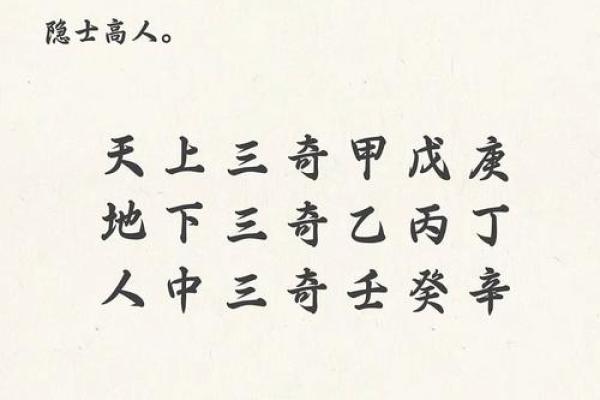 隐士高人。
天上三奇甲戊庚
地下三奇乙丙丁
人中三奇壬癸辛